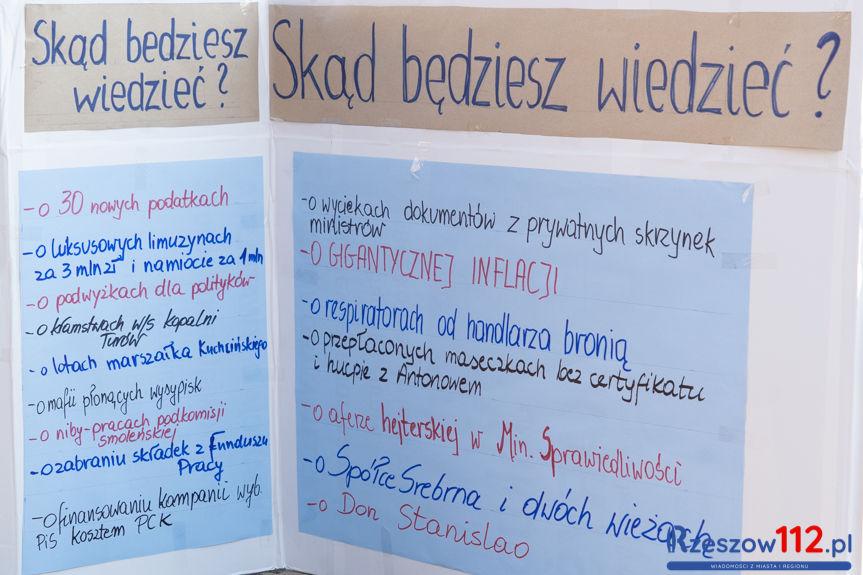 Skąd bedziesz
wiedzieć?
- o 30 nowych podatkach
- o luksusowych limuzynach
za 3 mln zł i namiocie za 1 mln
- o podwyżkach dla polityków
- o kłamstwach w/s kopalni
Turów
- o lotach marszałka Kuchcińskiego
- o mafii płonących wysypisk
- o niby-pracach podkomisji
smoleńskiej
- o zabraniu składek z Funduszu
Pracy
- o finansowaniu kampanii wyb.
PiS kosztem PCK
Skąd będziesz wiedzieć?
- o wyciekach dokumentów z prywatnych skrzynek
ministrów
- O GIGANTYCZNEJ INFLACJI
- o respiratorach od handlarza bronią
- o przepłaconych maseczkach bez certyfikatu
i hucpie z Antonowem
- o aferze hejterskiej w Min. Sprawiedliwości
- o Spółce Srebrna i dwóch wieżach
- o Don Stanislao
Rzeszow112.pl
WIADOMOŚCI Z MIASTA I REGIONU